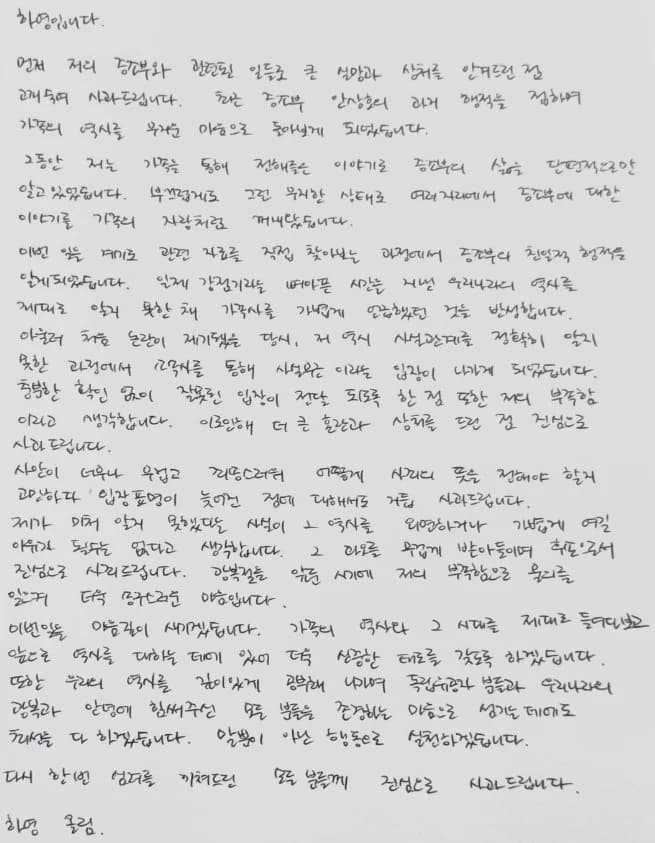 하영입니다.
먼저 저의 증조부와 관련된 일들로 큰 실망과 상처를 안겨드린 점
고개숙여 사과드립니다. 최근 증조부 안상호의 과거 행적을 접하며
가족의 역사를 무거운 마음으로 돌아보게 되었습니다.
그동안 저는 가족을 통해 전해들은 이야기로 증조부의 삶을 단편적으로만
알고 있었습니다. 부끄럽게도 그런 무지한 상태로 여러자리에서 증조부에 대한
이야기를 가족의 자랑처럼 꺼내왔습니다.
이번 일을 계기로 관련 자료를 직접 찾아보는 과정에서 증조부의 친일적 행적을
알게되었습니다. 일제 강점기라는 뼈아픈 시간을 지낸 우리나라의 역사를
제대로 알지 못한 채 가족사를 가볍게 언급했던 것을 반성합니다.
아울러 처음 논란이 제기됐을 당시, 저 역시 사실관계를 정확히 알지
못한 과정에서 소속사를 통해 사실무근 이라는 입장이 나가게 되었습니다.
충분한 확인 없이 잘못된 입장이 전달 되도록 한 점 또한 저의 부족함
이라고 생각합니다. 이로인해 더 큰 혼란과 상처를 드린 점 진심으로
사과드립니다.
사안이 너무나 무겁고 죄송스러워 어떻게 사죄의 뜻을 전해야 할지
고민하다 입장표명이 늦어진 점에 대해서도 거듭 사과드립니다.
제가 미처 알지 못했다는 사실이 그 역사를 외면하거나 가볍게 여길
이유가 될수는 없다고 생각합니다. 그 과오를 무겁게 받아들이며 후손으로서
진심으로 사죄드립니다. 광복절을 앞둔 시기에 저의 부족함으로 물의를
일으켜 더욱 송구스러운 마음입니다.
이번일을 마음깊이 새기겠습니다. 가족의 역사와 그 시대를 제대로 들여다보고
앞으로 역사를 대하는 데에 있어 더욱 신중한 태도를 갖도록 하겠습니다.
또한 우리의 역사를 깊이있게 공부해 나가며 독립유공자 분들과 우리나라의
광복과 안녕에 힘써주신 모든 분들을 존경하는 마음으로 섬기는 데에도
최선을 다 하겠습니다. 말뿐이 아닌 행동으로 실천하겠습니다.
다시 한번 심려를 끼쳐드린 모든 분들께 진심으로 사과드립니다.
하영 올림.